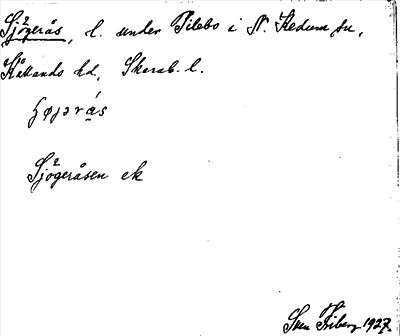 Sjögerås, l. under Pilebo i N. Kedum sn,
Kållands hd, Skarab. l.
Sjögeråsen ek
Sven Friberg 1927.